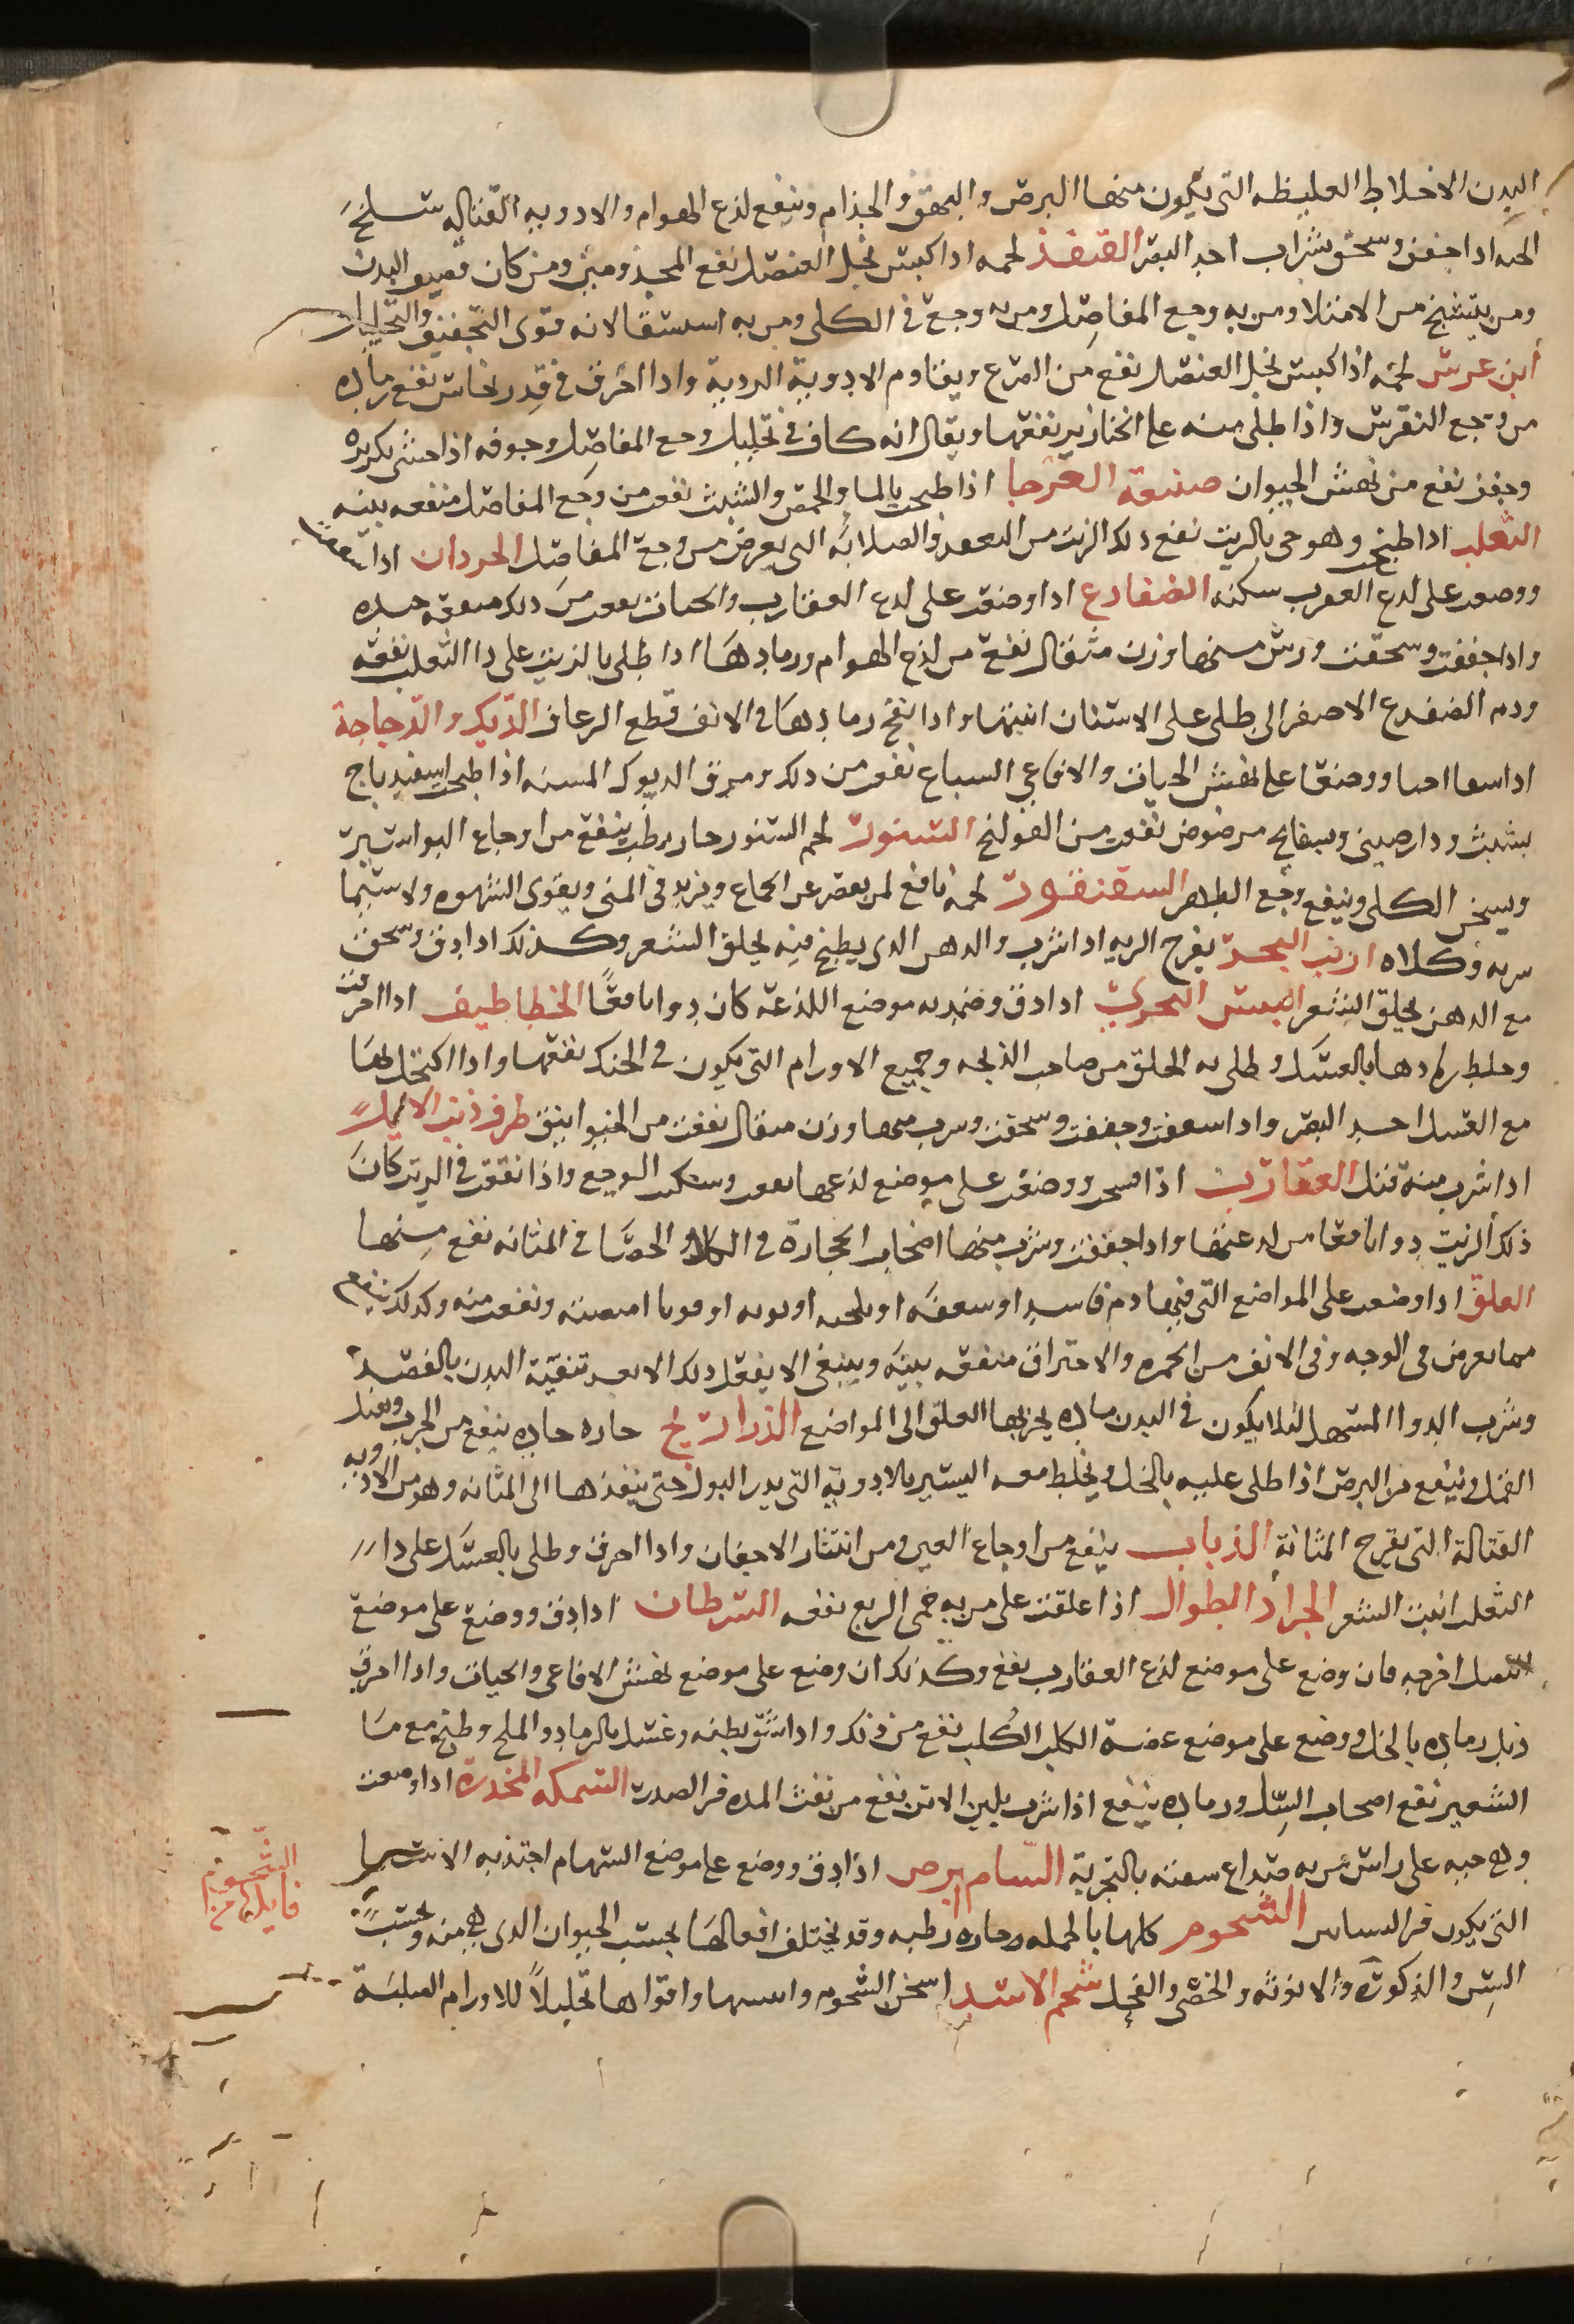 البدن الاخلاط الغليظه التى يكون منها البرص والبهق والجذام وينفع لذع الهوام والادويه القتاله سلخ
الحيه اذا جفف وسحق بشراب احد البصر القنفذ لحمه اذا كبس بخل العنصل نفع المجذومين ومن كان قصيف البدن
ومن يتشنج من الامتلا ومن به وجع المفاصل ومن به وجع فى الكلى ومن به استسقا لانه قوى التجفيف والتحليل
ابن عرس لحمه اذا كبس بخل العنصل نفع من الصرع ويقاوم الادوية الردية واذا احرق فى قدر نحاس نفع رماده
من وجع النقرس واذا طلى منه على الخنازير نفعها ويقال انه كاف فى تحليل وجع المفاصل وجوفه اذا حشى بكزبره
وجفف نفع من نهش الحيوان صنعة العرجا اذا طبخت بالما والحمص والشبث نفعت من وجع المفاصل منفعه بينه
الثعلب اذا طبخ وهو حى بالزيت نفع ذلك الزيت من التعقد والصلابه التى يعرض من وجع المفاصل الحردان اذا
ووضعت على لدغ العقرب سكنه الضفادع اذا وضعت على لدغ العقارب والحيات نفعت من ذلك منفعه حسنه
واذا جففت وسحقت وشرب منها وزن مثقال نفع من لذع الهوام ورمادها اذا طلى بالزيت على دا الثعلب نفعه
ودم الضفدع الاصفر اذا طلى على الاسنان انبتها واذا نفخ رمادها فى الانف قطع الرعاف الديك والدجاجة
اذا شقا احيا ووضعا على نهش الحيات والافاعى السباع نفعت من ذلك ومرق الديوك المسنه اذا طبخت اسفيدباج
بشبث ودارصينى وبسفايج مرضوض نفعت من القولنج السنور لحم السنور حار رطب ينفع من اوجاع البواسير
ويسخن الكلى وينفع وجع الظهر السقنقور لحمه نافع لمن يقصر عن الجماع ويزيد فى المنى ويقوى الشهوه ولا سيما
سرته وكلاه ارنب البحر يقرح الريه اذا شرب والدهن الذى يطبخ فيه يحلق الشعر وكذلك اذا دق وسحق
مع الدهن يحلق الشعر البحرى اذا دق وضمد به موضع اللذعه كان دوا نافعًا الخطاطيف اذا احرقت
وخلط رمادها بالعسل وطلى به الحلق من صاحب الذبحه وجميع الاورام التى يكون فى الحنك نفعتها واذا اكتحل بها
مع العسل احد البصر واذا وجففت وسحقت وشرب منها وزن مثقال نفعت من الخوانيق طرف ذنب الايل
اذا شرب منه قتل العقارب اذا ووضعت على موضع لذعها نفعت وسكنت الوجع واذا نقعت فى الزيت كان
ذلك الزيت دوا نافعا من لدغتها واذا جففت وشرب منها اصحاب الحجارة فى الكلا والحصا فى المثانه نفع منها
العلق اذا وضعت على المواضع التى فيها دم فاسد او سعفه او او او قوبا امتصته ونفعت منه وكذلك ينفع
مما يعرض فى الوجه وفى الانف من الحمره والاحتراق منفعه بينه وينبغى الا يفعل ذلك الا بعد تنقية البدن بالفصد
وشرب الدوا المسهل لئلا يكون فى البدن ماده يجذبها العلق الى المواضع الذراريح حاده حاره ينفع من الجرب ويقتل
القمل وينفع من البرص اذا طلى عليه بالخل ويخلط معه اليسير بالادويه التى يدر البول حتى ينفذها الى المثانه وهو من الادويه
القتالة التى يقرح المثانه الذباب ينفع من اوجاع العين ومن انتثار الاجفان واذا احرق وطلى بالعسل على دا
الثعلب انبت الشعر الجراد الطوال اذا علقت على من به حمى الربع نفعه السرطان اذا دق ووضع على موضع
النصل اخرجه فان وضع على موضع لذع العقارب نفع وكذلك ان وضع على موضع نهش الافاعى والحيات واذا احرق
ذيل رماده بالخل ووضع على موضع عضة الكلب الكلب نفع من ذلك واذا شق بطنه وغسل بالرماد والملح وطبخ مع ما
الشعير نفع اصحاب السل ورماده ينفع اذا شرب بلبن الاتن نفع من نفث المده فى الصدر السمكه المخدرة اذا وضعت
وهى حيه على راس من به صداع سكنه بالتجربة السام ابرص اذا دق ووضع على موضع السهام اجتذبه الاشيا
التى يكون فى الشحوم كلها بالجمله حاره رطبه وقد يختلف افعالها بحسب الحيوان الذى هى منه وبحسب
السن والذكورة والانوثه والخصى والفحل شحم الاسد اسخن الشحوم واقواها تحليلاً للاورام الصلبة
الشحوم